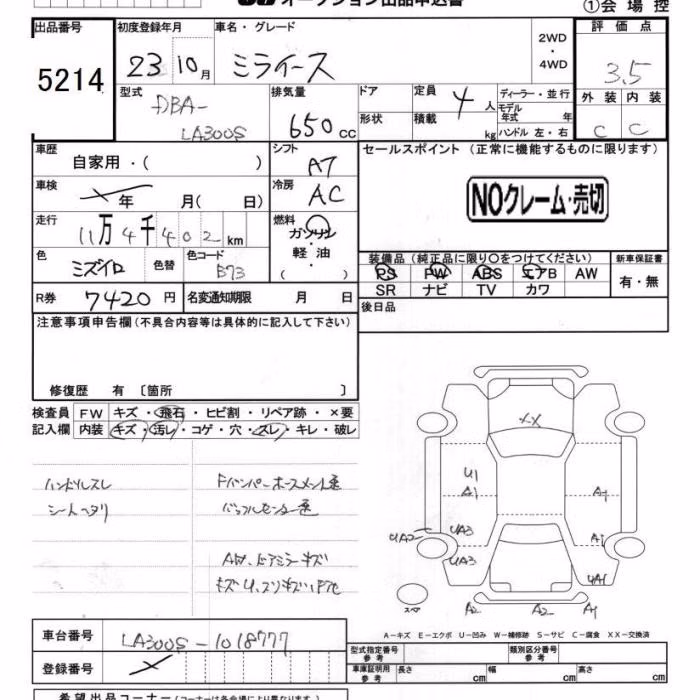 オークション出品申込書
①会場控
出品番号 初度登録年月 車名・グレード 2WD・4WD 評価点
5214 23 10月 ミライース 3.5
型式 排気量 ドア 定員 4人 ディーラー・並行 外装 内装
DBA-LA300S 650cc 形状 積載 kg モデル年式 年 C C
ハンドル 左・右
車歴 シフト セールスポイント (正常に機能するものに限ります)
自家用・( ) AT
車検 年 月( 日) 冷房 AC NOクレーム・売切
走行 11万4千402km 燃料 ガソリン・軽油・( )
色 ミズイロ 色替 色コード B73
装備品 (純正品に限り〇をつけてください) 新車保証書
PS PW ABS エアB AW 有・無
SR ナビ TV カワ
R券 7420円 名変通知期限 月 日
後日品
注意事項申告欄(不具合内容等は具体的に記入して下さい)
修復歴 有 〔箇所 〕
検査員 FW キズ・飛石・ヒビ割・リペア跡・×要
記入欄 内装 キズ・汚レ・コゲ・穴・スレ・キレ・破レ
ハンドルスレ
シートヘタリ
XX
U1
A1 A1
UA2 UA3 A1
UA3 UA1
スペア A2 A2 A1
A-キズ E-エクボ U-凹み W-補修跡 S-サビ C-腐食 XX-交換済
車台番号 LA300S-1018777
登録番号
型式指定番号 参考 類別区分番号 参考
車庫証明用 参考 長さ cm 幅 cm 高さ cm
希望出品コーナー (コーナーは各会場により異なります)